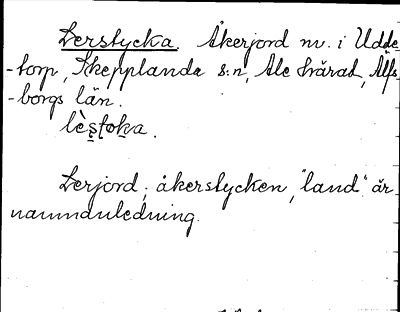 Lerstycka. Åkerjord nv. i Udde
-torp, Skepplanda s:n, Ale härad, Älfs
-borgs län.
lè̀stoka.
Lerjord; åkerstycken, "land" är
namnduledning.